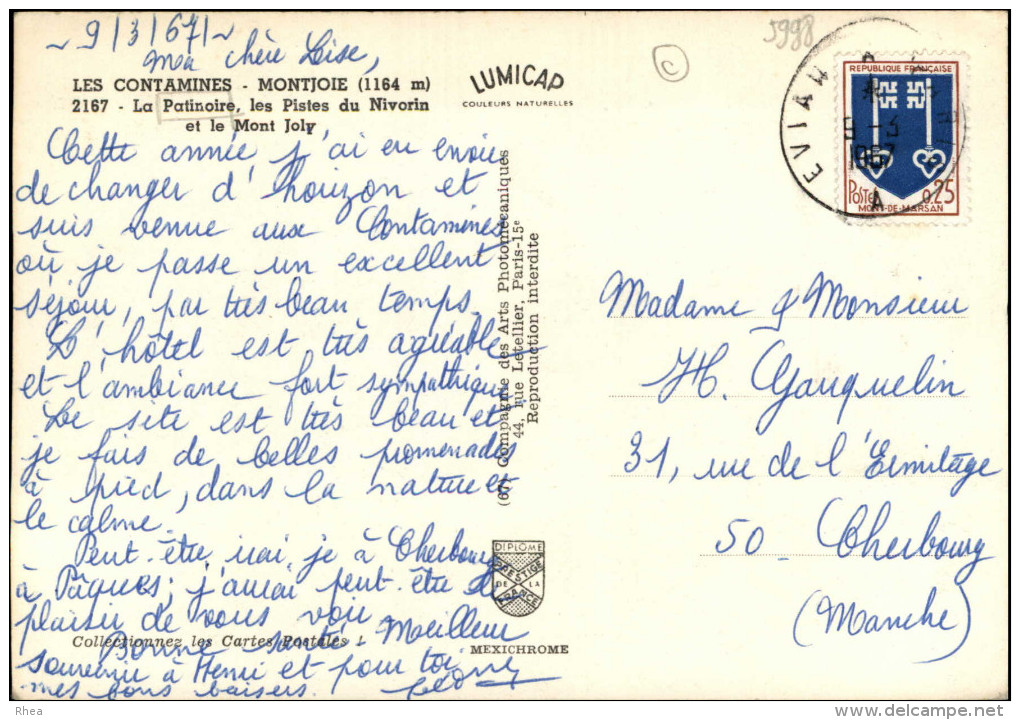 ~ 9/3/67 ~
5998
Ma chère Lise,
LES CONTAMINES - MONTJOIE (1164 m)
2167 - La Patinoire, les Pistes du Nivorin
et le Mont Joly
LUMICAP
COULEURS NATURELLES
Cette année j'ai eu envie
de changer d'horizon et
suis venue aux Contamines
où je passe un excellent
séjour, par très beau temps.
L'hôtel est très agréable
et l'ambiance fort sympathique
Le site est très beau et
je fais de belles promenades
à pied, dans la nature et
le calme.
Peut-être irai-je à Cherbourg
à Pâques; j'aurai peut-être le
plaisir de vous voir
Collectionnez les Cartes Postales !
Bonne santé. Meilleur
souvenir à Henri et pour toi
mes bons baisers.
(67) Compagnie des Arts Photomécaniques
44, rue Letellier, Paris-15e
Reproduction interdite
DIPLOME
PRESTIGE
DE LA
FRANCE
MEXICHROME
C
EVIAN
9 - 3
1967
A
REPUBLIQUE FRANÇAISE
POSTES 0.25
MONT-DE-MARSAN
Madame & Monsieur
H. Gauquelin
31, rue de l'Ermitage
50 - Cherbourg
(Manche)
© Rhea
http://www.delcampe.net